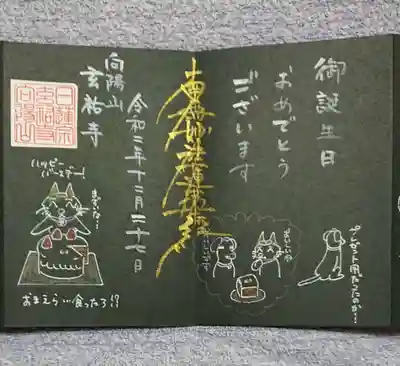 御誕生日
おめでとう
ございます
プレゼント用だったのか…
南無妙法蓮華経
令和二年十二月二十七日
向陽山
玄祐寺
日蓮宗
玄祐寺
向陽山
ハッピー
バースデー!
おまえら食ったろ!?